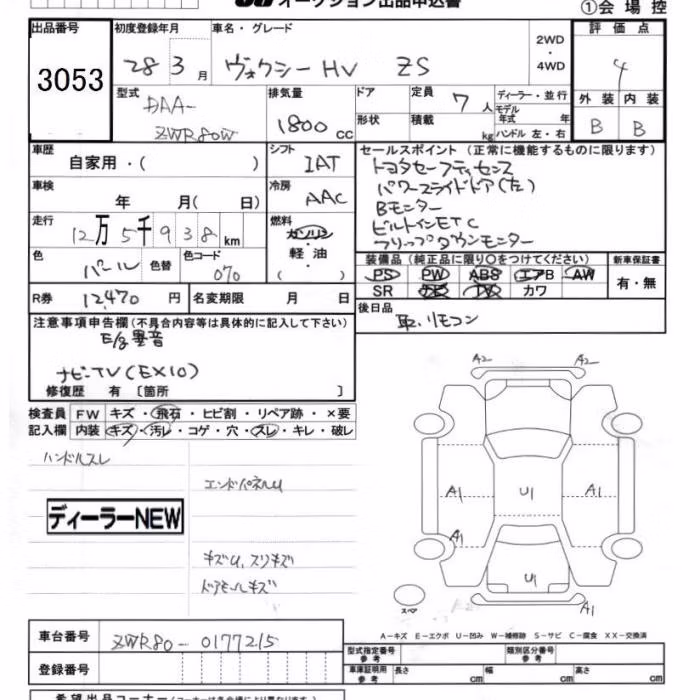 オークション出品申込書
①会場控
出品番号
初度登録年月
車名・グレード
2WD
・
4WD
評価点
3053
28 3月
ヴォクシーHV ZS
4
型式
排気量
ドア
定員
7人
ディーラー・並行
モデル
年式 年
外装 内装
DAA-
ZWR80W
1800 CC
形状
積載
kg
ハンドル 左・右
B B
車歴
シフト
セールスポイント (正常に機能するものに限ります)
自家用・( )
IAT
トヨタセーフティセンス
パワースライドドア(左)
Bモニター
ビルトインETC
フリップダウンモニター
車検
年 月( 日)
冷房
AAC
走行
12万5千938km
燃料
ガソリン
・
軽油
・
( )
色
パール
色替
色コード
070
装備品 (純正品に限り○をつけてください)
新車保証書
PS PW ABS エアB AW
有・無
SR ナビ TV カワ
R券
12,470円
名変期限 月 日
後日品
取、リモコン
注意事項申告欄 (不具合内容等は具体的に記入して下さい)
E/g異音
ナビーTV(EX10)
修復歴 有 〔箇所 〕
検査員
記入欄
FW キズ・飛石・ヒビ割・リペア跡・×要
内装 キズ・汚レ・コゲ・穴・スレ・キレ・破レ
ハンドルスレ
エンドパネルU
ディーラーNEW
キズU、スリキズ
ドアモールキズ
A2 A2
A1 U1 A1
A1
U1
スペア
A1
A-キズ E-エクボ U-凹み W-補修跡 S-サビ C-腐食 XX-交換済
車台番号
ZWR80-0177215
登録番号
型式指定番号
参考
類別区分番号
参考
車庫証明用
参考
長さ cm
幅 cm
高さ cm
希望出品コーナー